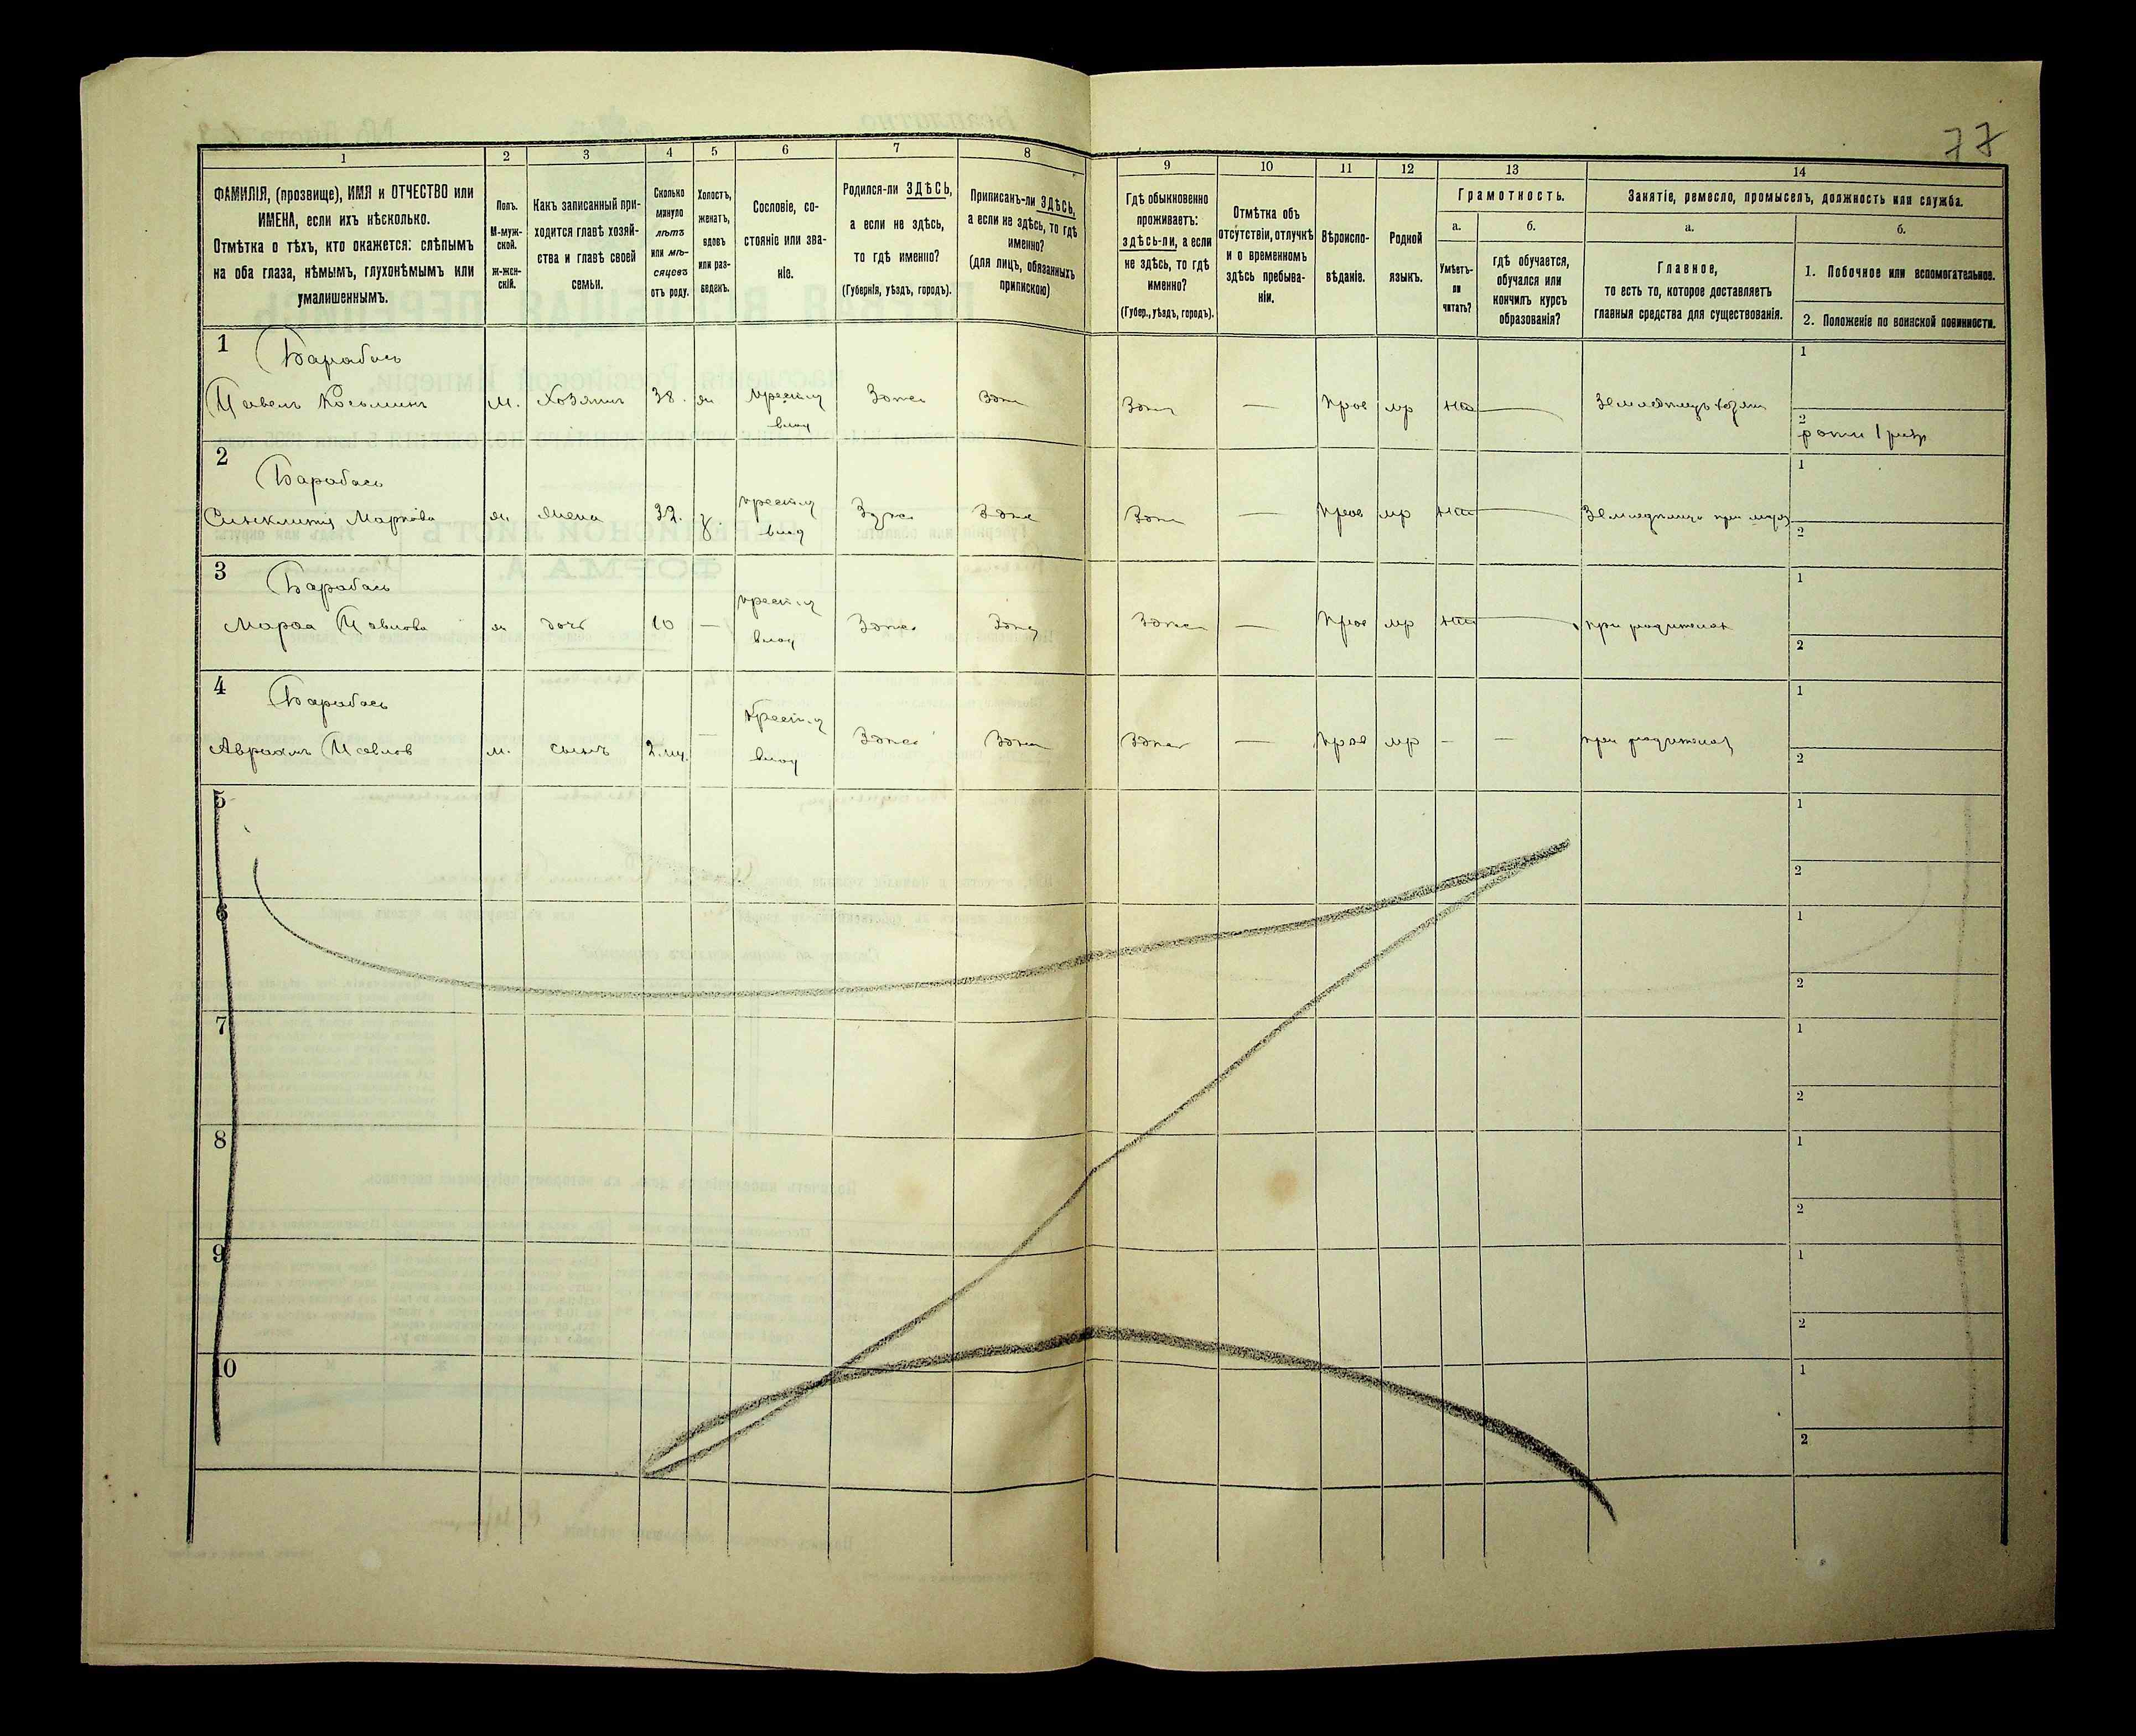 77
1 2 3 4 5 6 7 8 9 10 11 12 13 14
ФАМИЛІЯ, (прозвище), ИМЯ и ОТЧЕСТВО или
ИМЕНА, если ихъ нѣсколько.
Отмѣтка о тѣхъ, кто окажется: слѣпымъ
на оба глаза, нѣмымъ, глухонѣмымъ или
умалишеннымъ.
Полъ.
М-муж-
ской.
ж-жен-
скій.
Какъ записанный при-
ходится главѣ хозяй-
ства и главѣ своей
семьи.
Сколько
минуло
лѣтъ
или мѣ-
сяцевъ
отъ роду.
Холостъ,
женатъ,
вдовъ
или раз-
веденъ.
Сословіе, со-
стояніе или зва-
ніе.
Родился-ли ЗДѢСЬ,
а если не здѣсь,
то гдѣ именно?
(Губернія, уѣздъ, городъ).
Приписанъ-ли ЗДѢСЬ,
а если не здѣсь, то гдѣ
именно?
(для лицъ, обязанныхъ
припискою)
Гдѣ обыкновенно
проживаетъ:
здѣсь-ли, а если
не здѣсь, то гдѣ
именно?
(Губер., уѣздъ, городъ).
Отмѣтка объ
отсутствіи, отлучкѣ
и о временномъ
здѣсь пребыва-
ніи.
Вѣроиспо-
вѣданіе.
Родной
языкъ.
Грамотность.
а.
Умѣетъ-
ли
читать?
б.
гдѣ обучается,
обучался или
кончилъ курсъ
образованія?
Занятіе, ремесло, промыселъ, должность или служба.
а.
Главное,
то есть то, которое доставляетъ
главныя средства для существованія.
б.
1. Побочное или вспомогательное.
2. Положеніе по воинской повинности.
1 Барабась 1
Павелъ Косьминъ м. хозяинъ 38. ж Здѣсь Здѣсь Здѣсь — прав мр нѣт —
влад 2
2 Барабась 1
Синклитія Маркова ж жена 32. з. Здѣсь Здѣсь Здѣсь — прав мр нѣт —
влад 2
3 Барабась 1
Марѳа Павлова ж дочь 10 — Здѣсь Здѣсь Здѣсь — прав мр нѣт — при родителях
влад 2
4 Барабась 1
Авраамъ Павлов м. сынъ 2.мц. — Здѣсь Здѣсь Здѣсь — прав мр — — при родителях
влад 2
5 1
2
6 1
2
7 1
2
8 1
2
9 1
2
10 1
2